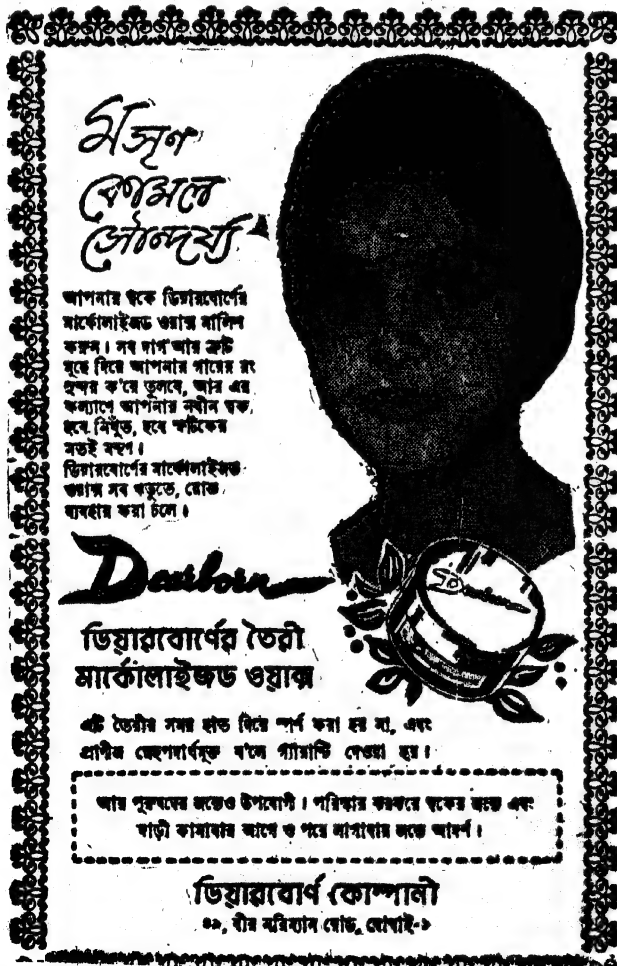 মসৃণ
কোমল
সৌন্দর্য্য
আপনার ত্বকে ডিয়ারবোর্ণের
মার্কোলাইজড ওয়াক্স মালিশ
করুন। সব দাগ আর ত্রুটি
মুছে দিয়ে আপনার গায়ের রং
সুন্দর ক'রে তুলবে, আর এর
কল্যাণে আপনার নবীন ত্বক,
হবে নিখুঁত, হবে স্ফটিকের
মতই মসৃণ।
ডিয়ারবোর্ণের মার্কোলাইজড
ওয়াক্স সব ঋতুতে, রোজ
ব্যবহার করা চলে।
Dearborn
Dearborn
ডিয়ারবোর্ণের তৈরী
মার্কোলাইজড ওয়াক্স
এটি তৈরীর সময় হাত দিয়ে স্পর্শ করা হয় না, এবং
প্রাণীজ স্নেহপদার্থমুক্ত ব'লে গ্যারান্টি দেওয়া হয়।
আর পুরুষদের জন্যেও উপযোগী। পরিষ্কার ঝরঝরে ত্বকের জন্যে এবং
দাড়ী কামাবার আগে ও পরে লাগাবার জন্যে আদর্শ।
ডিয়ারবোর্ণ কোম্পানী
বীর নরিম্যান রোড, বোম্বাই-১